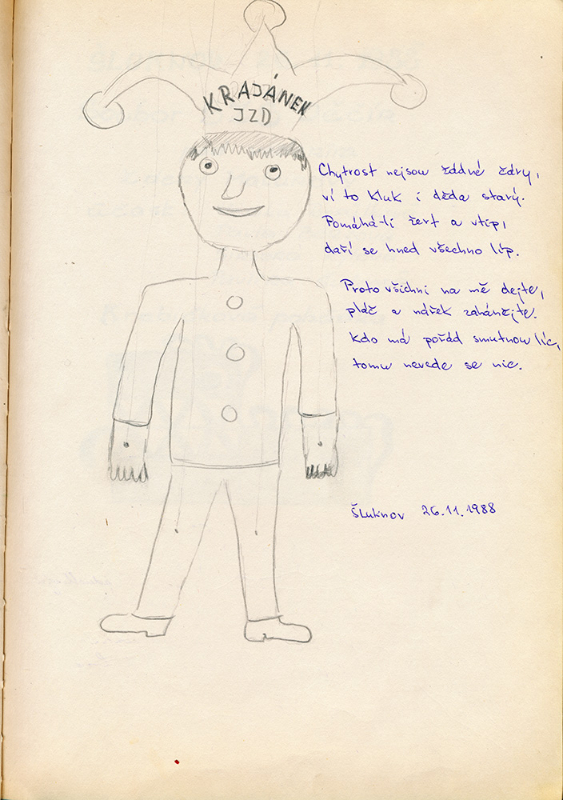 KRAJÁNEK
JZD
Chytrost nejsou žádné čáry,
ví to kluk i děda starý.
Pomáhá-li žert a vtip,
daří se hned všechno líp.
Proto všichni na mě dejte,
pláč a nářek zahánějte.
Kdo má pořád smutnou líc,
tomu nevede se nic.
Šluknov 26.11.1988